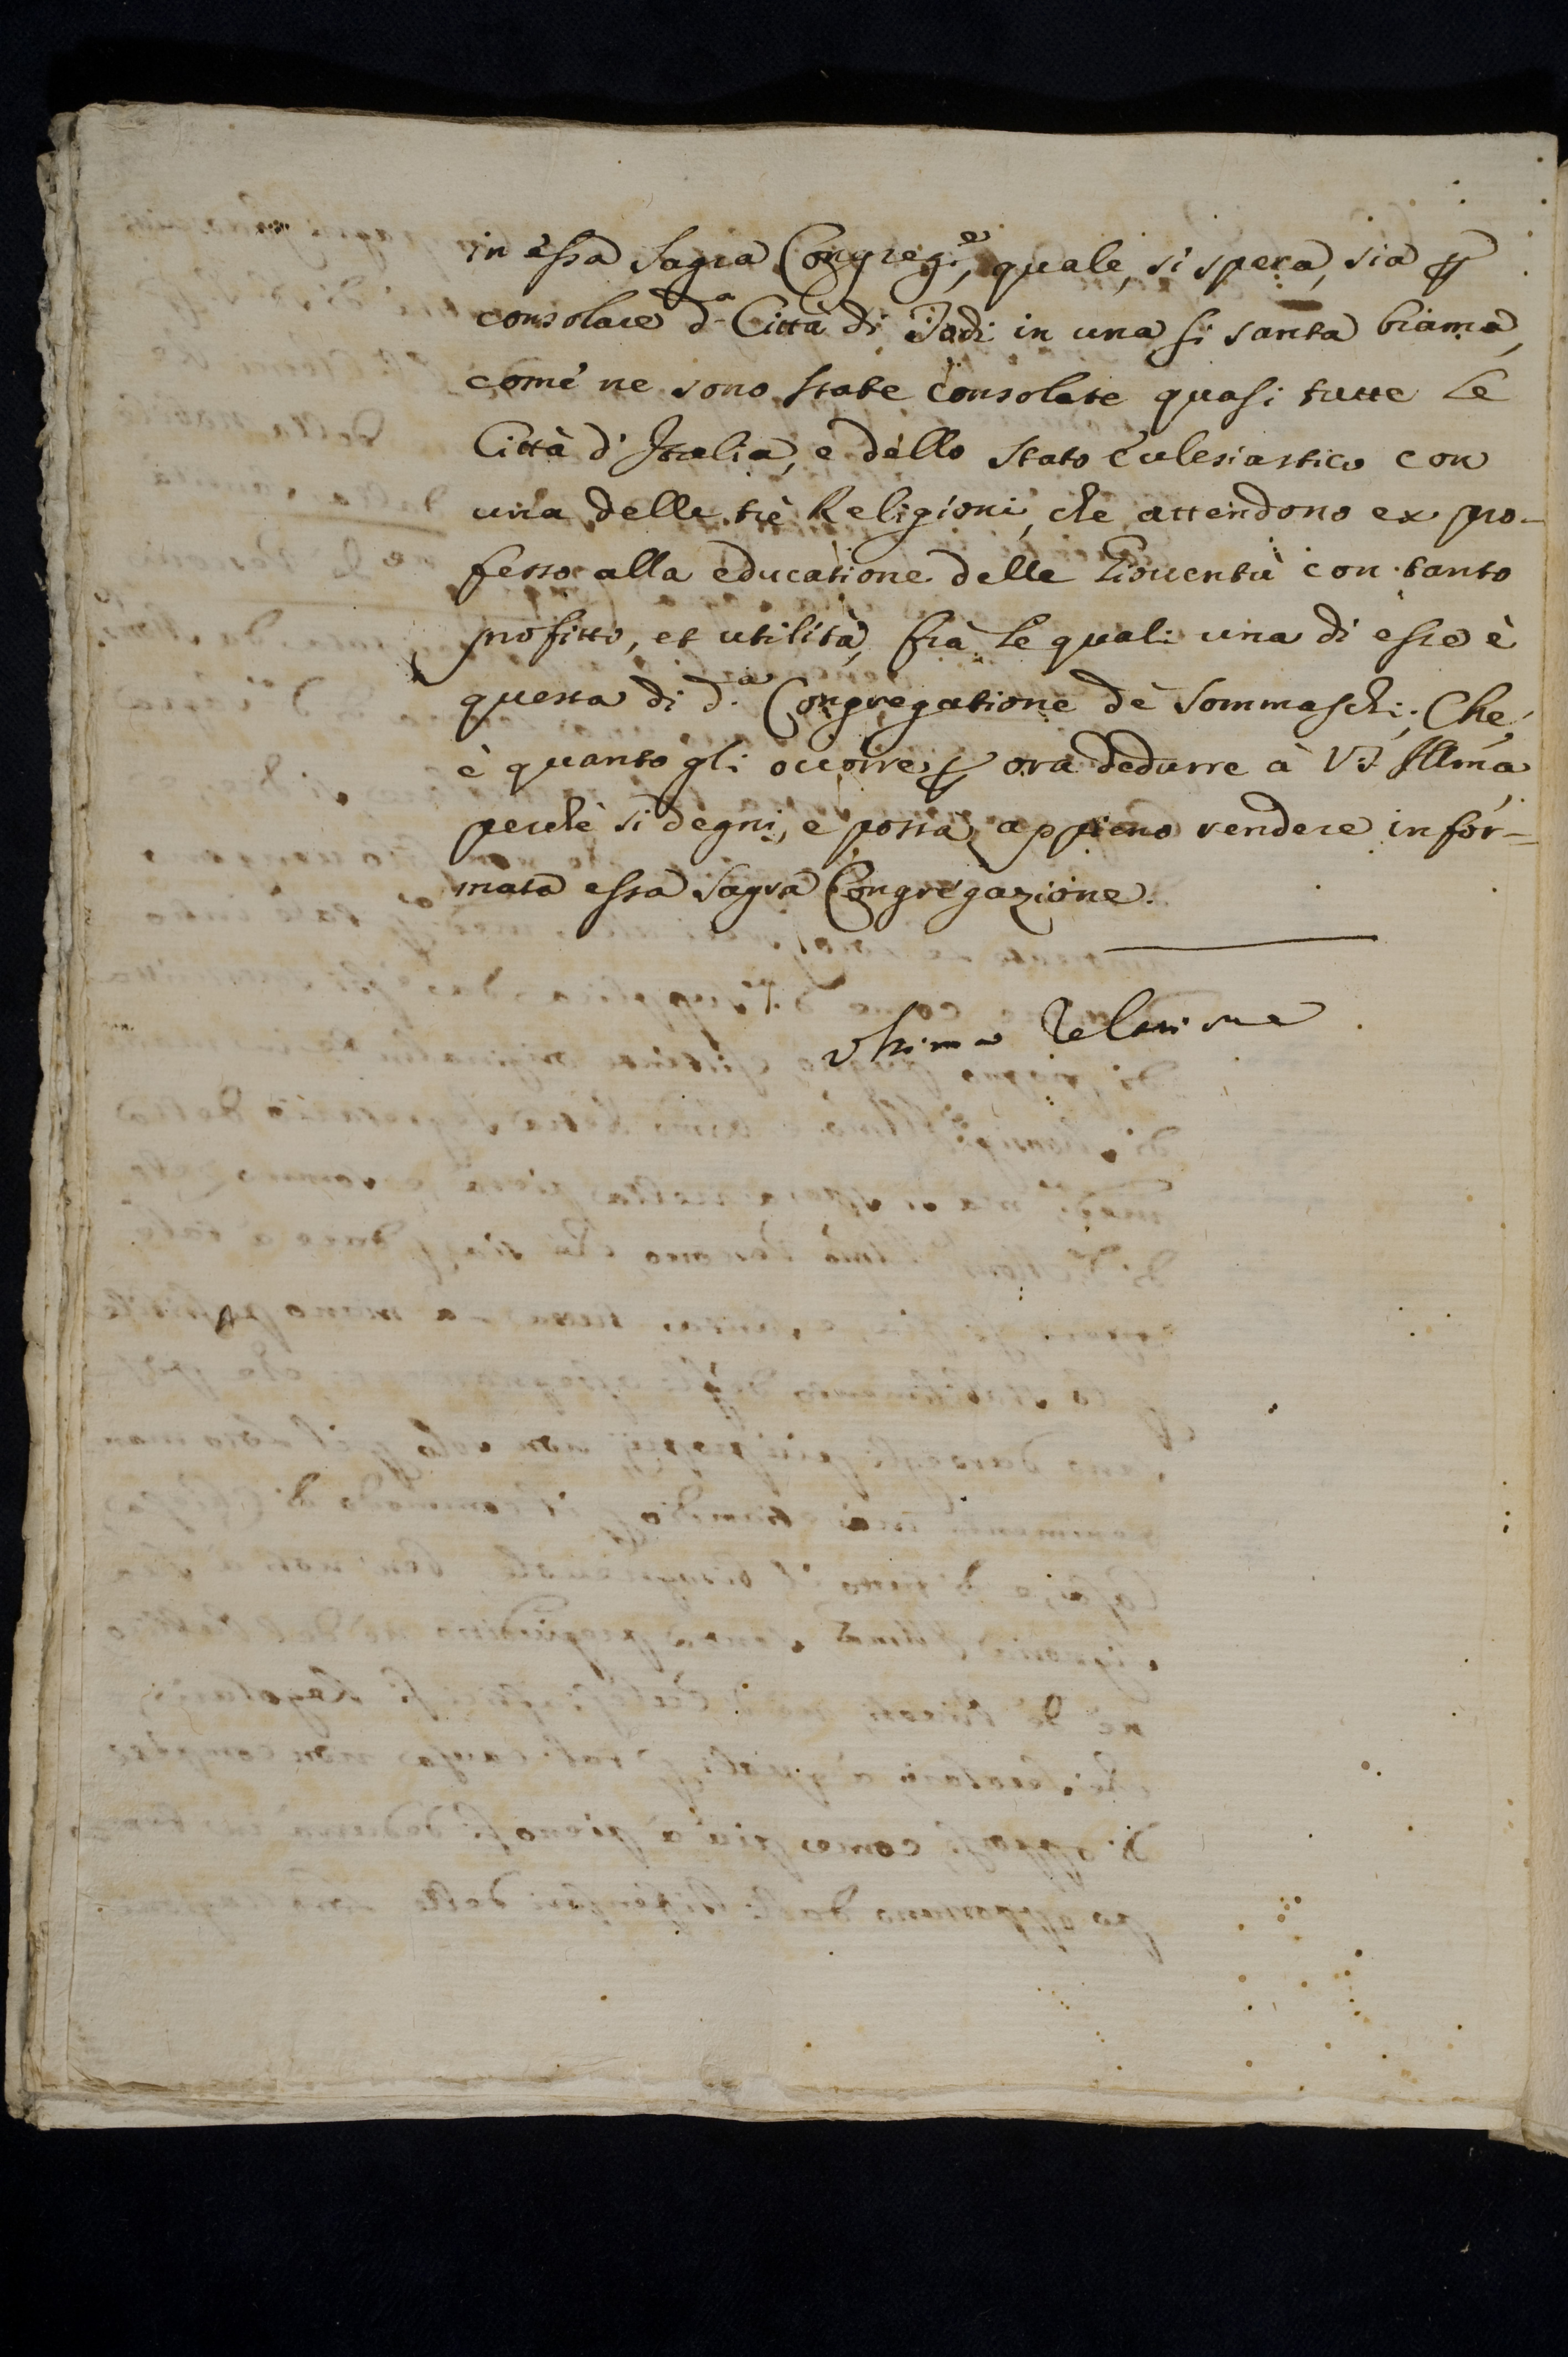 in essa Sagra Congreg.e, quale, si spera, sia ꝑ
consolare d.a Città di Todi in una si santa brama,
come ne sono state consolate quasi tutte Le
Città d'Italia, e dello Stato Eclesiastico con
una delle trè Religioni, che attendono ex pro-
fesso alla educatione delle Gioventù con tanto
profitto, et utilità, frà Le quali una di esse è
questa di d.a Congregatione de Sommaschi; Che
è quanto gli occorre ꝑ ora dedurre à V.S. Illma
perche si degni, e possa appieno rendere infor-
mata essa Sagra Congregazione.
ultima Relatione